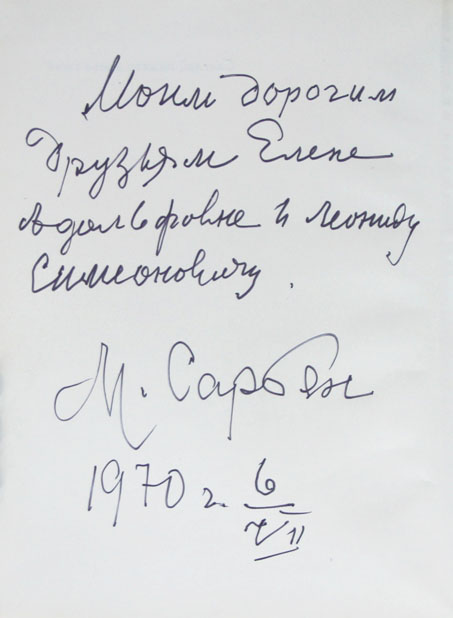 Моим дорогим
друзьям Елене
Адольфовне и Леониду
Симеоновичу.
М. Сарьян
1970 г. 6/VII